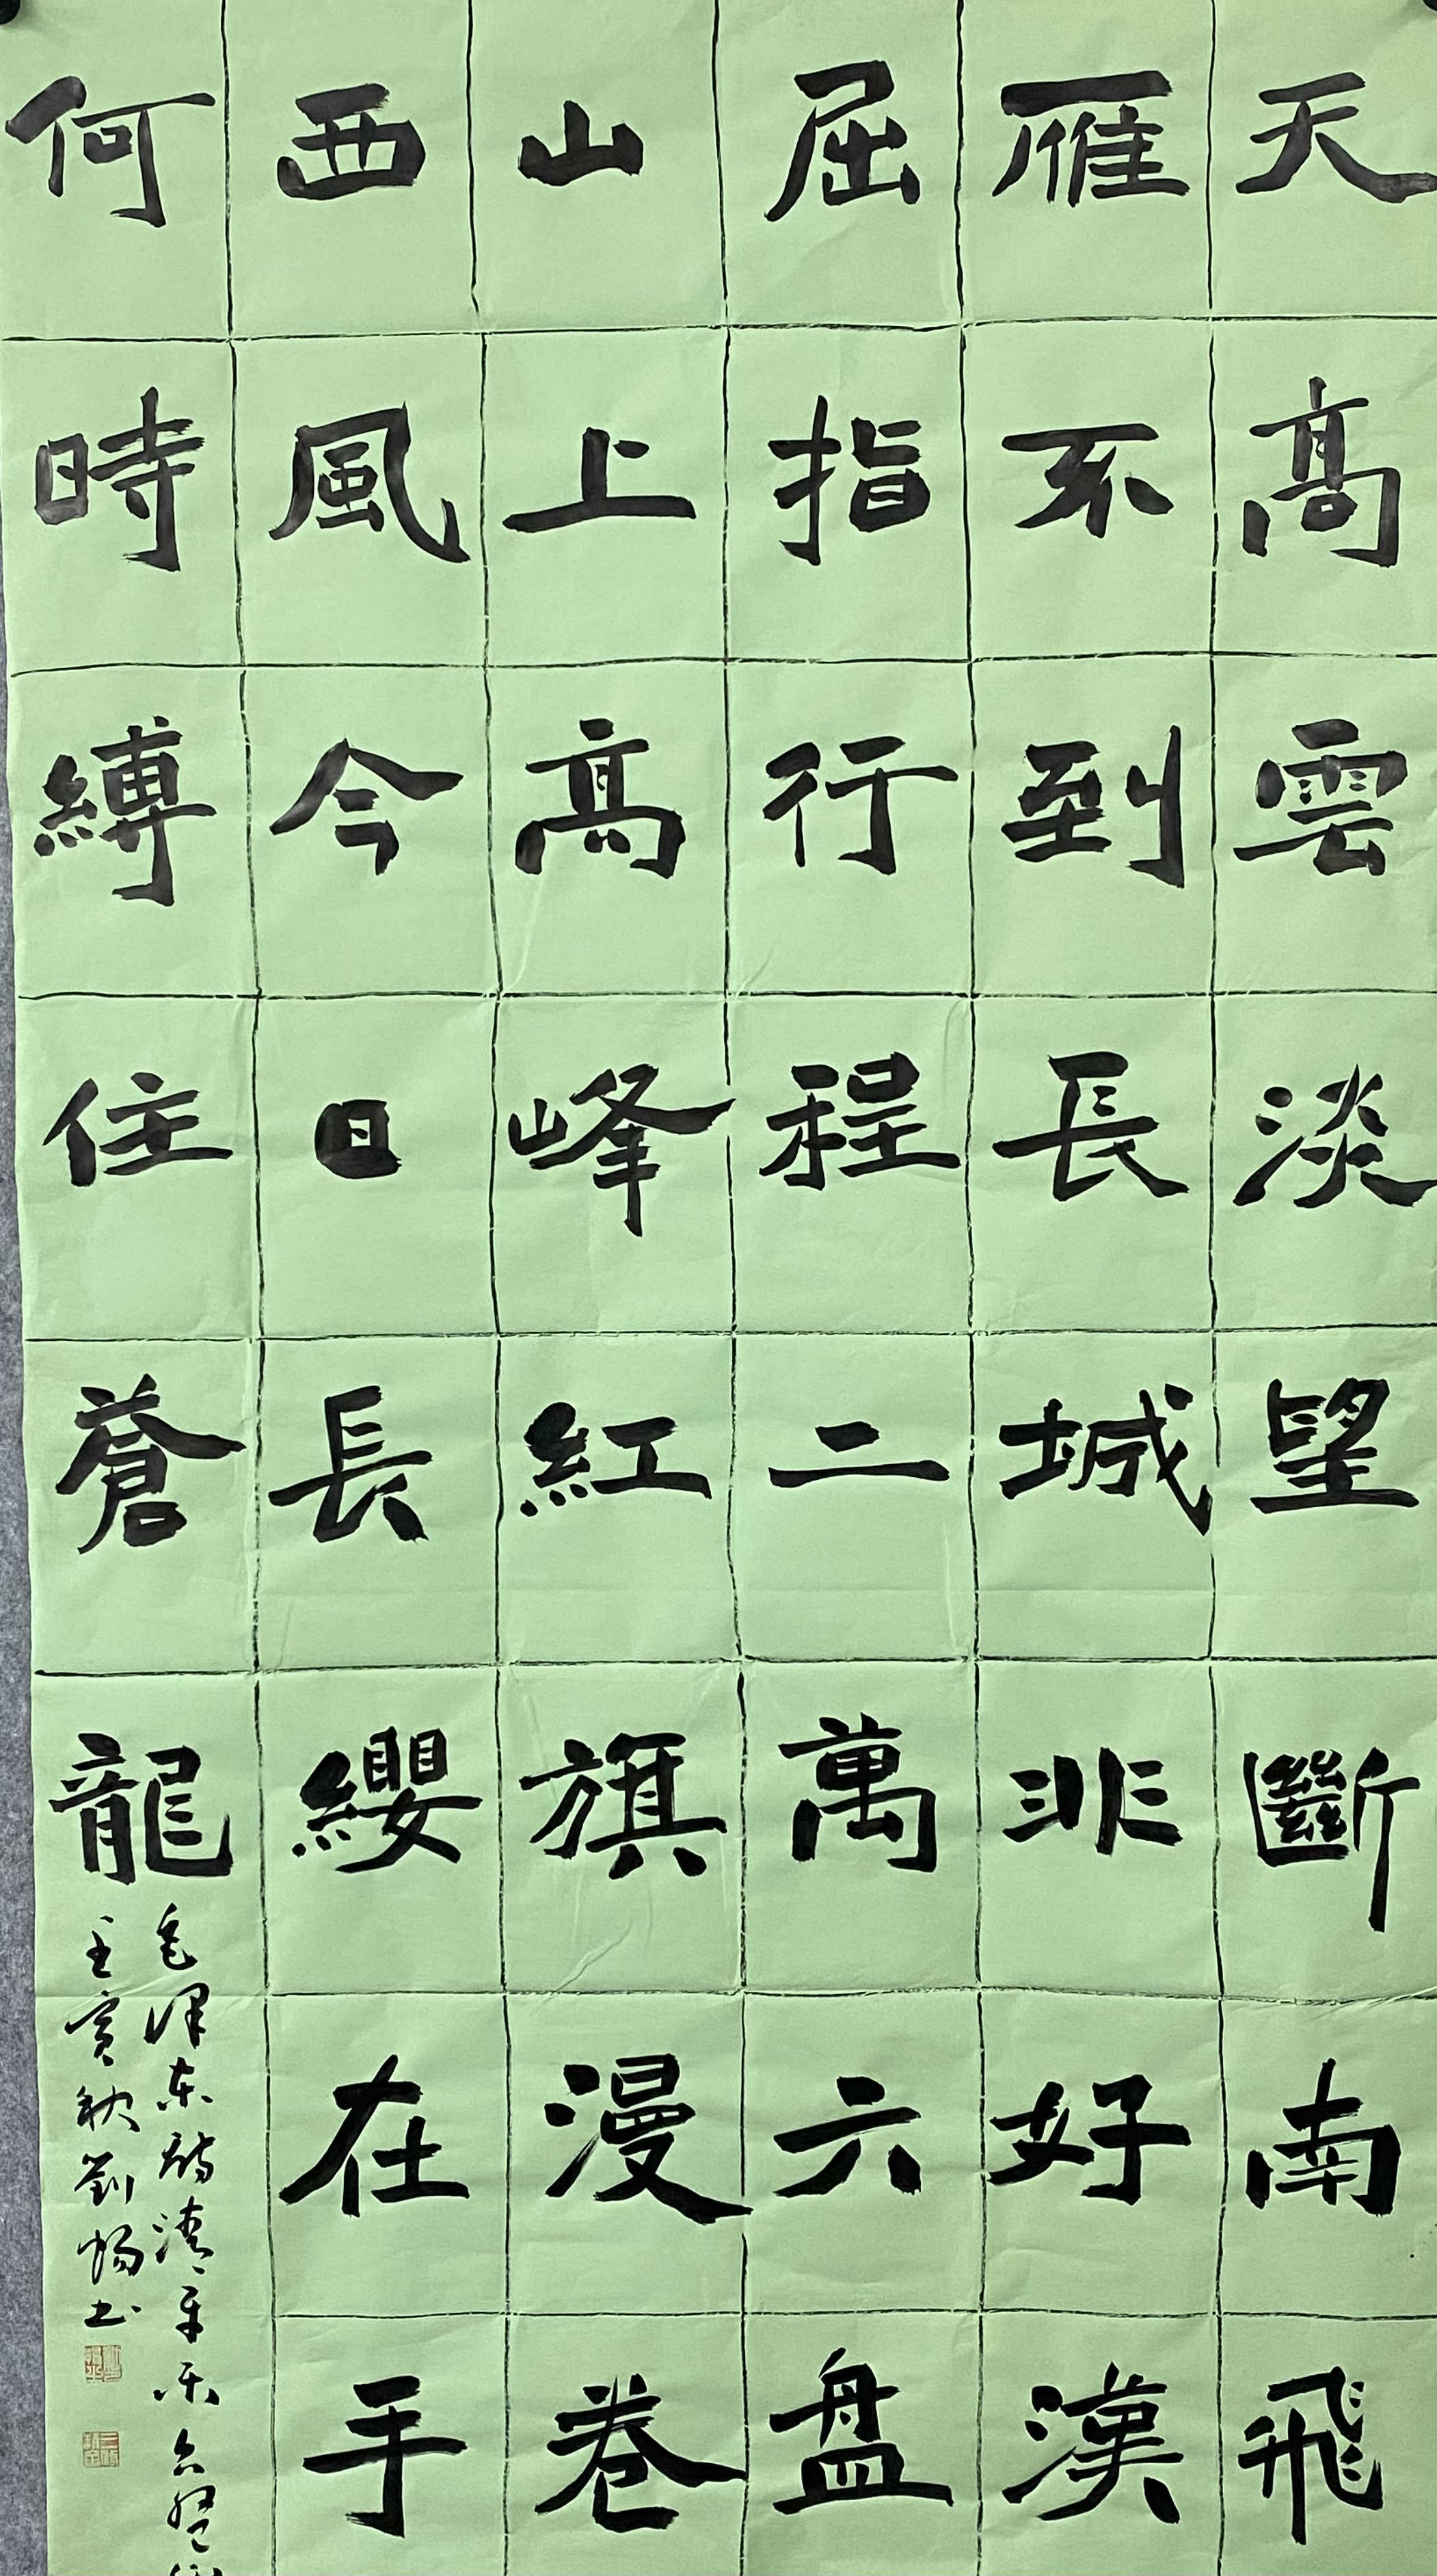 天高雲淡望斷南飛
雁不到長城非好漢
屈指行程二萬六盤
山上高峰紅旗漫卷
西風今日長纓在手
何時縛住蒼龍
毛澤東詞清平樂六盤
壬寅秋劉暢書